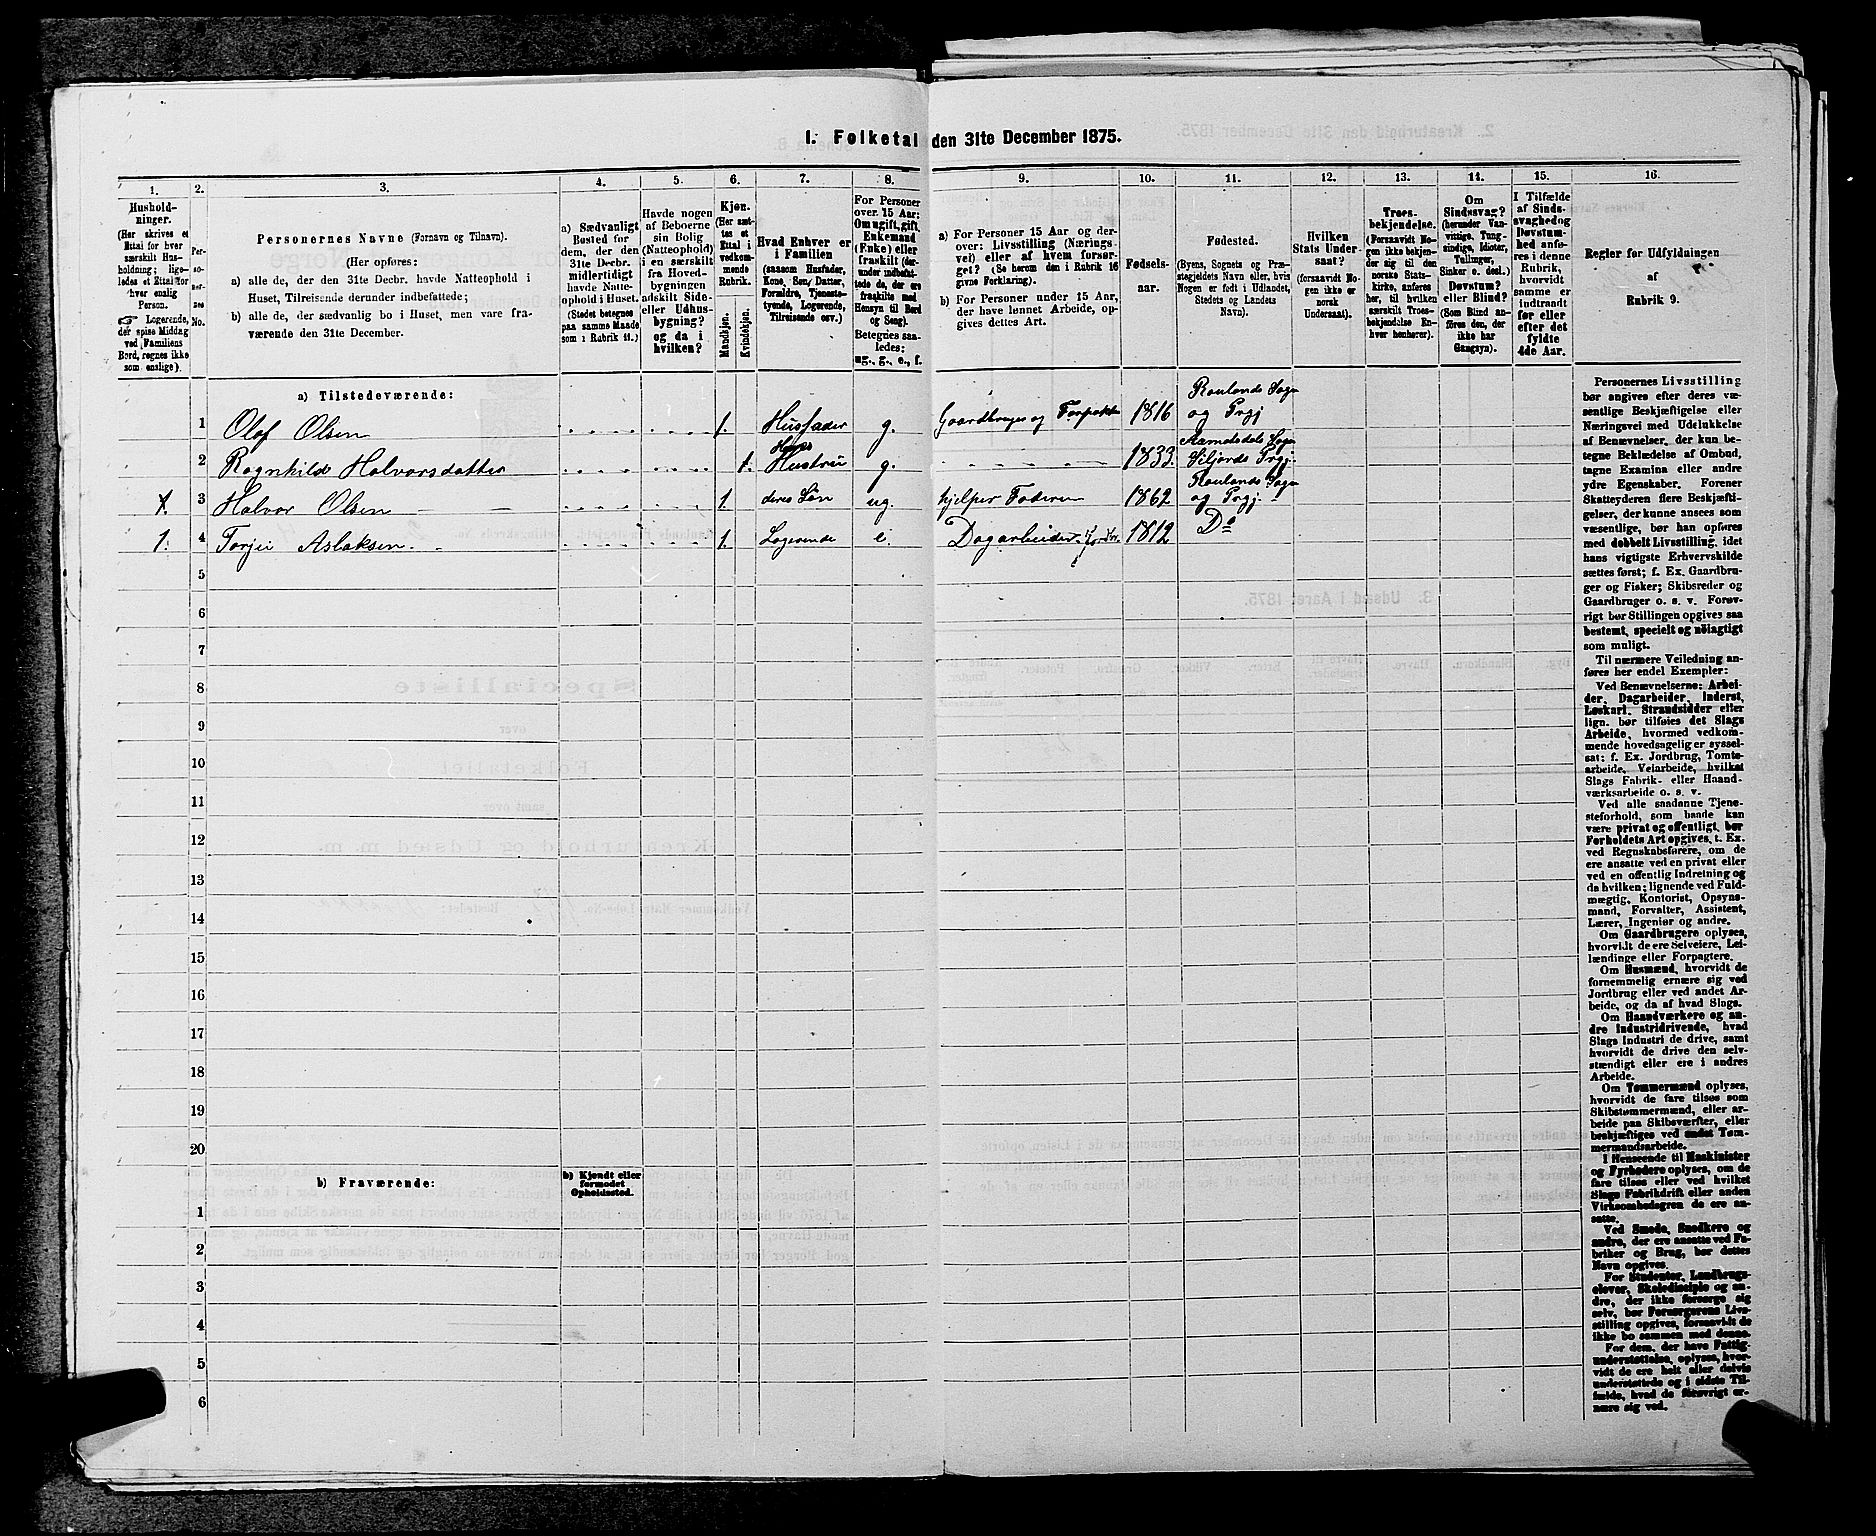 I. Folketal den 31te December 1875.
1. 2. 3. 4. 5. 6. 7. 8. 9. 10. 11. 12. 13. 14. 15. 16.
Husholdninger.
(Her skrives et
Ettal for hver
særskilt Husholdning;
ligeledes et Ettal for
hver enslig
Person.
☞ Logerende,
der spise Middag
ved Familiens
Bord, regnes ikke
som enslige).
Personernes No.
Personernes Navne (Fornavn og Tilnavn).
(Her opføres:
a) alle de, der den 31te Decbr. havde Natteophold i
Huset, Tilreisende derunder indbefattede;
b) alle de, der sædvanlig bo i Huset, men vare fraværende
den 31te December.
a) Sædvanligt
Bosted for
dem, der den
31te Decbr.
midlertidigt
havde Natteophold
i Huset.
(Stedet betegnes
paa samme Maade
som i Rubrik 11.)
Havde nogen
af Beboerne
sin Bolig
(Natteophold)
i en særskilt
fra Hovedbygningen
adskilt Side-
eller Udhusbygning?
og da i
hvilken?
Kjøn.
(Her sættes
et
Ettal i
vedkommende
Rubrik.
Mandkjøn.
Kvindekjøn.
Hvad Enhver er
i Familien
(saasom Husfader,
Kone, Søn, Datter,
Forældre, Tjenestetyende,
Logerende,
Tilreisende osv.)
For Personer
over 15 Aar:
Om ugift, gift,
Enkemand
(Enke) eller
fraskilt (derunder
indbefattede
de, der ere
fraskilte med
Hensyn til Bord
og Seng).
Betegnes saaledes:
ug., g., e., f.
a) For Personer 15 Aar og derover:
Livsstilling (Næringsvei)
eller af hvem forsørget?
(Se herom den i Rubrik 16
givne Forklaring).
b) For Personer under 15 Aar,
der have lønnet Arbeide, opgives
dettes Art.
Fødselsaar.
Fødested.
(Byens, Sognets og Præstegjeldets
Navn eller, hvis
Nogen er født i Udlandet,
Stedets og Landets
Navn).
Hvilken
Stats Undersaat?
(forsaavidt Nogen
ikke er
norsk
Undersaat).
Troesbekjendelse.
(Forsaavidt Nogen
ikke bekjender
sig til den
norske Statskirke,
anføres
her, til hvilken
særskilt Troesbekjendelse
Enhver
henhører).
Om
Sindssvag?
(herunder Vanvittige,
Tungsindige,
Idioter,
Tullinger,
Sinker o. desl.)
Døvstum?
eller Blind?
(Som Blind anføres
den, der
ikke har
Gangsyn).
I Tilfælde
af Sindssvaghed
og
Døvstumhed
anføres
i denne
Rubrik,
hvorvidt
samme er
indtraadt
før eller
efter det
fyldte
4de Aar.
Regler for Udfyldningen
af
Rubrik 9.
a) Tilstedeværende:
1 Olaf Olsen 1. Husfader g. Gaardbruger og Forpakter 1816 Raulands Sogn og Prgj
2 Ragnhild Halvorsdatter 1. Hans Hustru g. 1833. Sogn Siljords Prgj.
1. 3 Halvor Olsen 1. deres Søn ug. hjelper Faderen 1862 Raulands Sogn og Prgj.
1. 4 Torjei Aslaksen 1. Logerende e. Dagarbeider 1812 Do
5
6
7
8
9
10
11
12
13
14
15
16
17
18
19
20
b) Fraværende:
b) Kjendt eller
formodet
Opholdssted.
1
2
3
4
5
6
Personernes Livsstilling
bør angives efter deres væsentlige
Beskjæftigelse eller
Næringsvei med Udelukkelse
af Benævnelser, der kun betegne
Beklædelse af Ombud,
tagne Examina eller andre
ydre Egenskaber. Forener
Skatteyderen flere Beskjæftigelser,
der kunne ansees som
væsentlige, bør han opføres
med dobbelt Livsstilling, idet
hans vigtigste Erhvervskilde
sættes først; f. Ex. Gaardbruger
og Fisker; Skibsreder og
Gaardbruger o. s. v. Forøvrigt
bør Stillingen opgives saa
bestemt, specielt og nöiagtigt
som muligt.
Til nærmere Veiledning anføres
her endel Exempler:
Ved Benævnelserne: Arbeider,
Dagarbeider, Inderst,
Løskarl, Strandsidder eller
lign. bør tilføies det Slags
Arbeide, hvormed vedkommende
hovedsagelig er sysselsat;
f. Ex. Jordbrug, Tomtearbeide,
Veiarbeide, hvilket
Slags Fabrik- eller Haandværksarbeide
o. s. v.
Ved alle saadanne Tjenesteforhold,
som baade kan
være privat og offentligt, bør
Forholdets Art opgives, t. Ex.
ved Regnskabsførere, om de
ere ansatte ved en privat eller
ved en offentlig Indretning og
da hvilken; lignende ved Fuldmægtig,
Kontorist, Opsynsmand,
Forvalter, Assistent,
Lærer, Ingeniør og andre.
Om Gaardbrugere oplyses,
hvorvidt de ere Selveiere, Leilændinge
eller Forpagtere.
Om Husmænd, hvorvidt de
fornemmelig ernære sig ved
Jordbrug eller ved andet Arbeide,
og da af hvad Slags.
Om Haandværkere og andre
Industridrivende, hvad
Slags Industri de drive, samt
hvorvidt de drive den selvstændigt
eller ere i andres
Arbeide.
Om Tømmermænd oplyses,
hvorvidt de fare tilsøs som
Skibstømmermænd, eller arbeide
paa Skibsværfter, eller
beskjæftiges ved andet Tømmermandsarbeide.
I Henseende til Maskinister
og Fyrbødere oplyses, om de
fare tilsøs eller ved hvilket
Slags Fabrikdrift eller anden
Virksomhedsgren de ere ansatte.
Ved Smede, Snedkere og
andre, der ere ansatte ved Fabriker
og Brug, bør dettes
Navn opgives.
For Studenter, Landbrugselever,
Skoledisciple og andre,
der ikke forsørge sig
selv, bør Forsørgerens Livsstilling
opgives, forsaavidt de
ikke bo sammen med denne.
For dem, der have Fattigunderstøttelse,
oplyses, hvorvidt
de ere helt eller delvis
understøttede og i sidste Tilfælde,
hvad de forøvrigt ernære
sig ved.